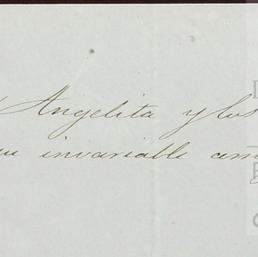 Angelita y los
invariable am